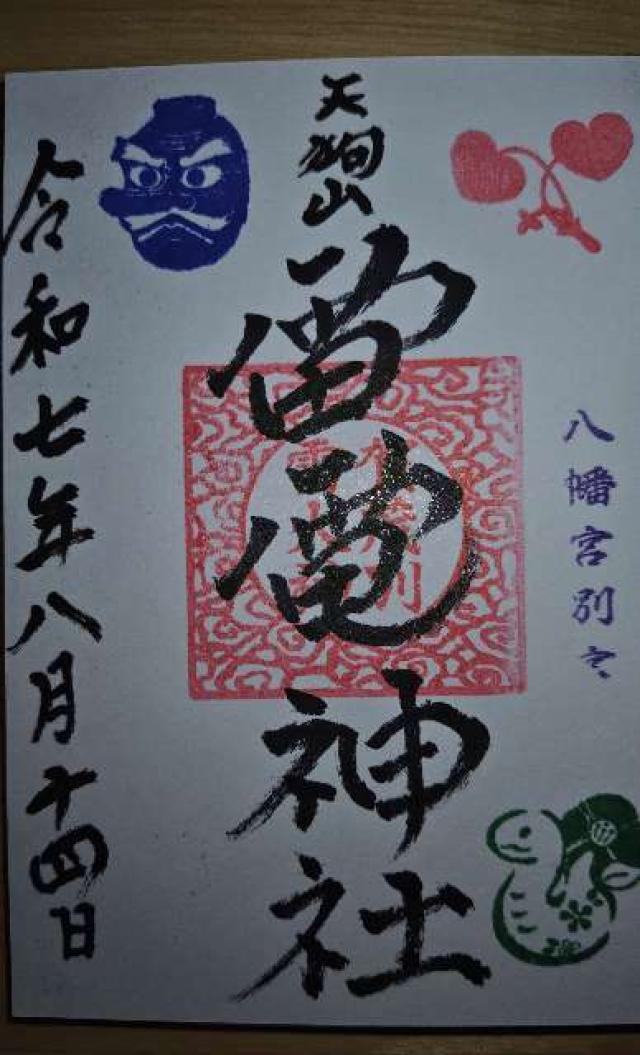 八幡宮別
天狗山
雷電神社
令和七年八月十四日